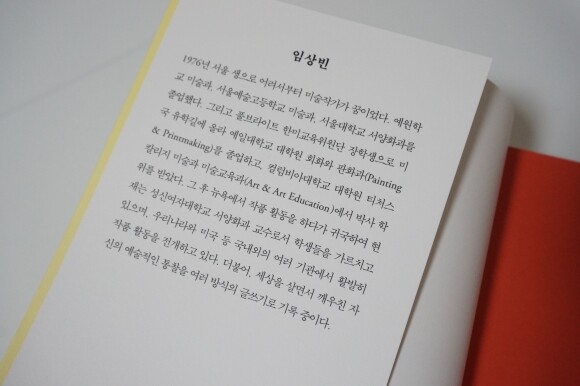 임상빈
1976년 서울 생으로 어려서부터 미술작가가 꿈이었다. 예원학
교 미술과, 서울예술고등학교 미술과, 서울대학교 서양화과를
졸업했다. 그리고 풀브라이트 한미교육위원단 장학생으로 미
국 유학길에 올라 예일대학교 대학원 회화와 판화과(Painting
& Printmaking)를 졸업하고, 컬럼비아대학교 대학원 티처스
칼리지 미술과 미술교육과(Art & Art Education)에서 박사 학
위를 받았다. 그 후 뉴욕에서 작품 활동을 하다가 귀국하여 현
재는 성신여자대학교 서양화과 교수로서 학생들을 가르치고
있으며, 우리나라와 미국 등 국내외의 여러 기관에서 활발히
작품 활동을 전개하고 있다. 더불어, 세상을 살면서 깨우친 자
신의 예술적인 통찰을 여러 방식의 글쓰기로 기록 중이다.